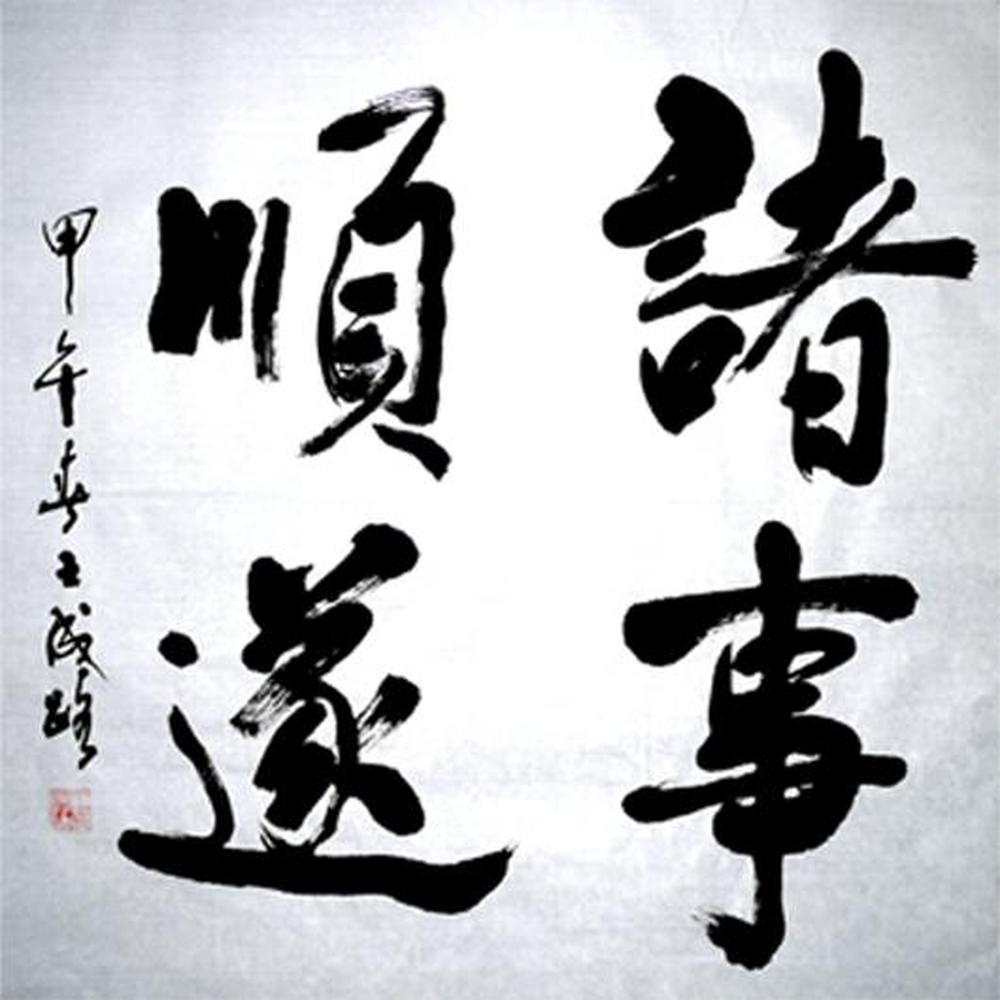 諸事
順遂
甲午春王成路